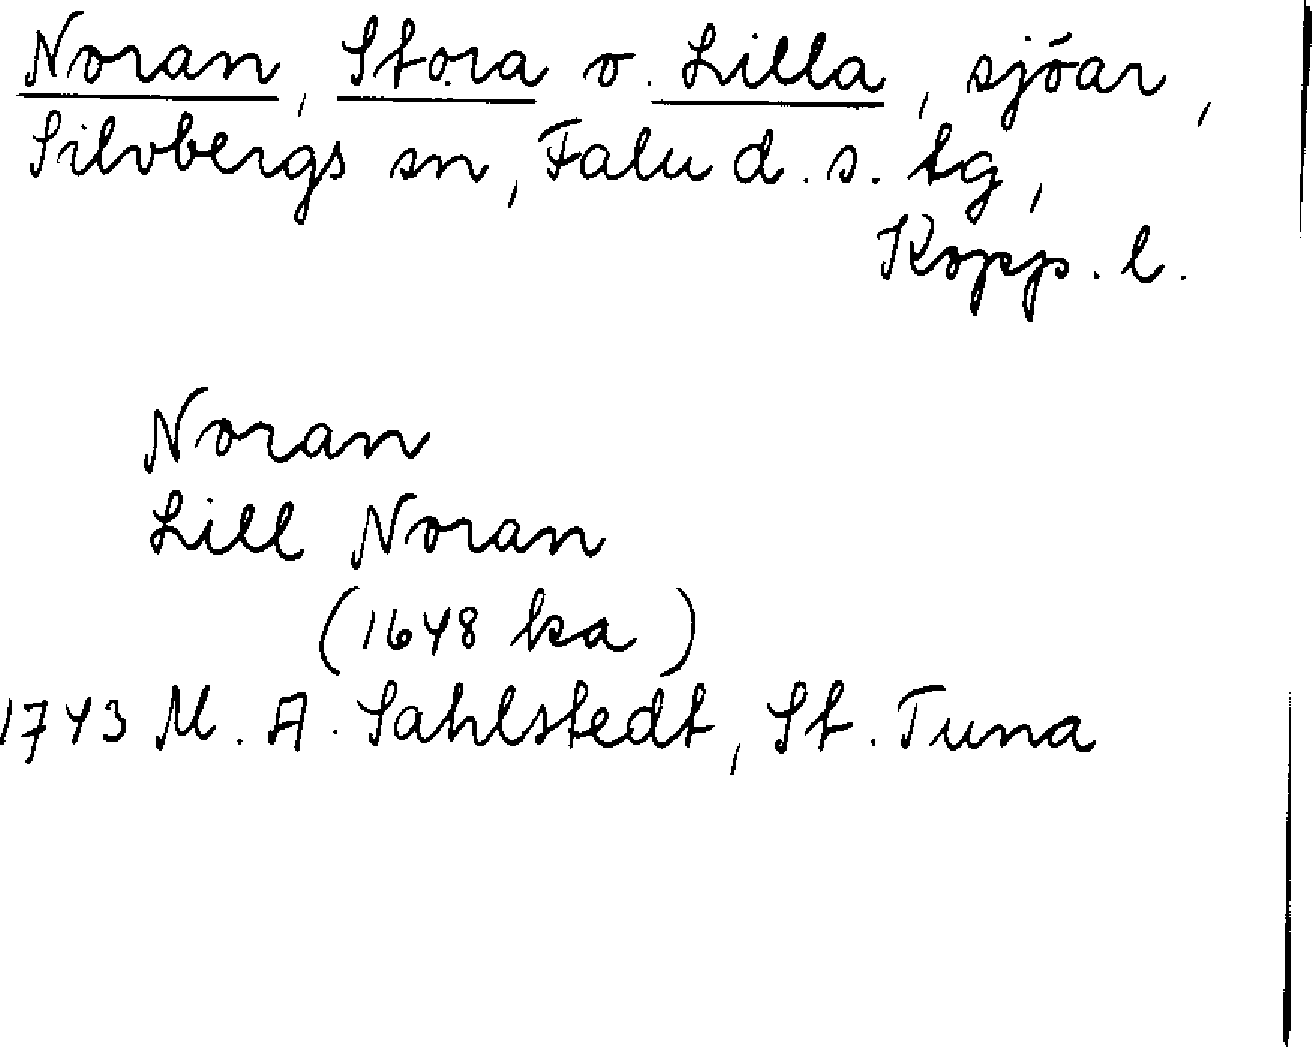 Noran, Stora o. Lilla, sjöar,
Silvbergs sn, Falu d. s. tg,
Kopp. l.
Noran
Lill Noran
(1648 ka)
1743 M. A. Sahlstedt, St. Tuna